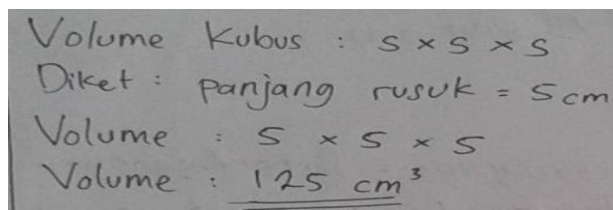 Volume Kubus : s x s x s
Diket : panjang rusuk = 5 cm
Volume : 5 x 5 x 5
Volume : 125 cm³